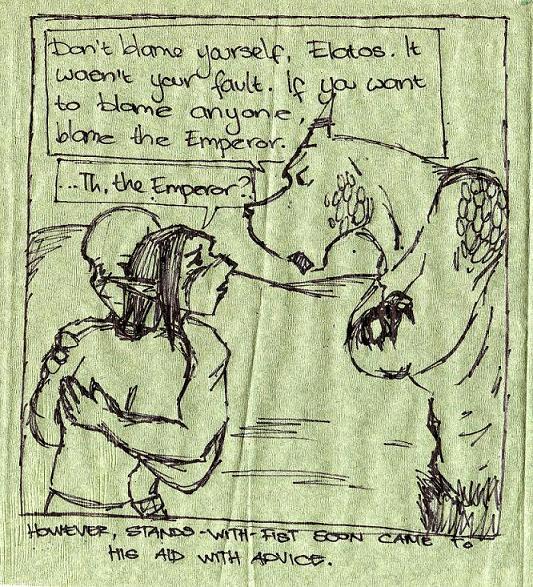 Don't blame yourself, Elatos. It
wasn't your fault. If you want
to blame anyone,
blame the Emperor.
...Th, the Emperor?
HOWEVER, STANDS-WITH-FIST SOON CAME TO
HIS AID WITH ADVICE.